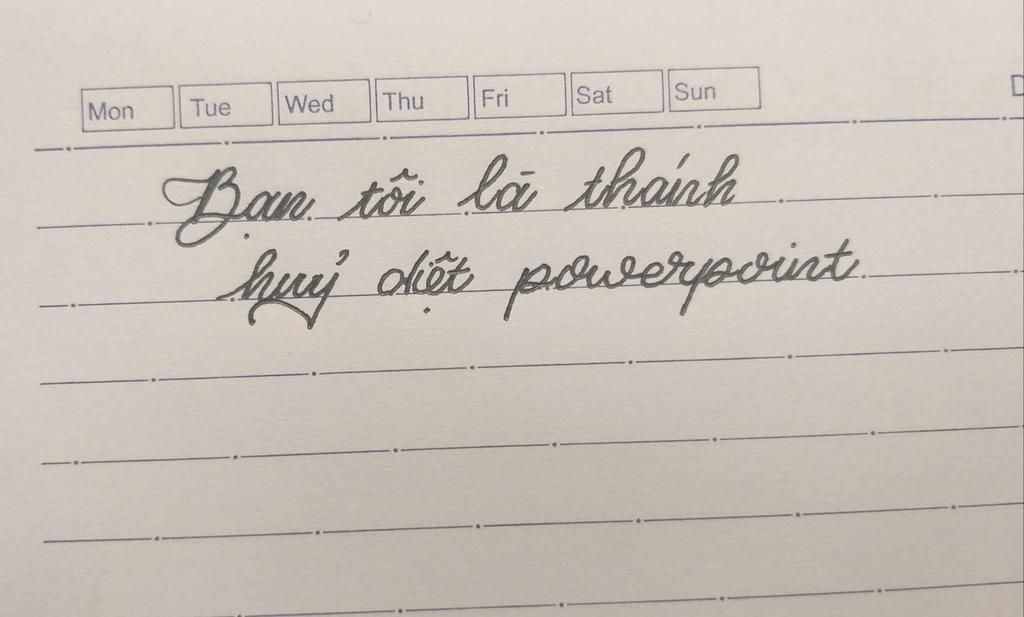 Mon Tue Wed Thu Fri Sat Sun
Bạn tôi là thánh
huỷ diệt powerpoint